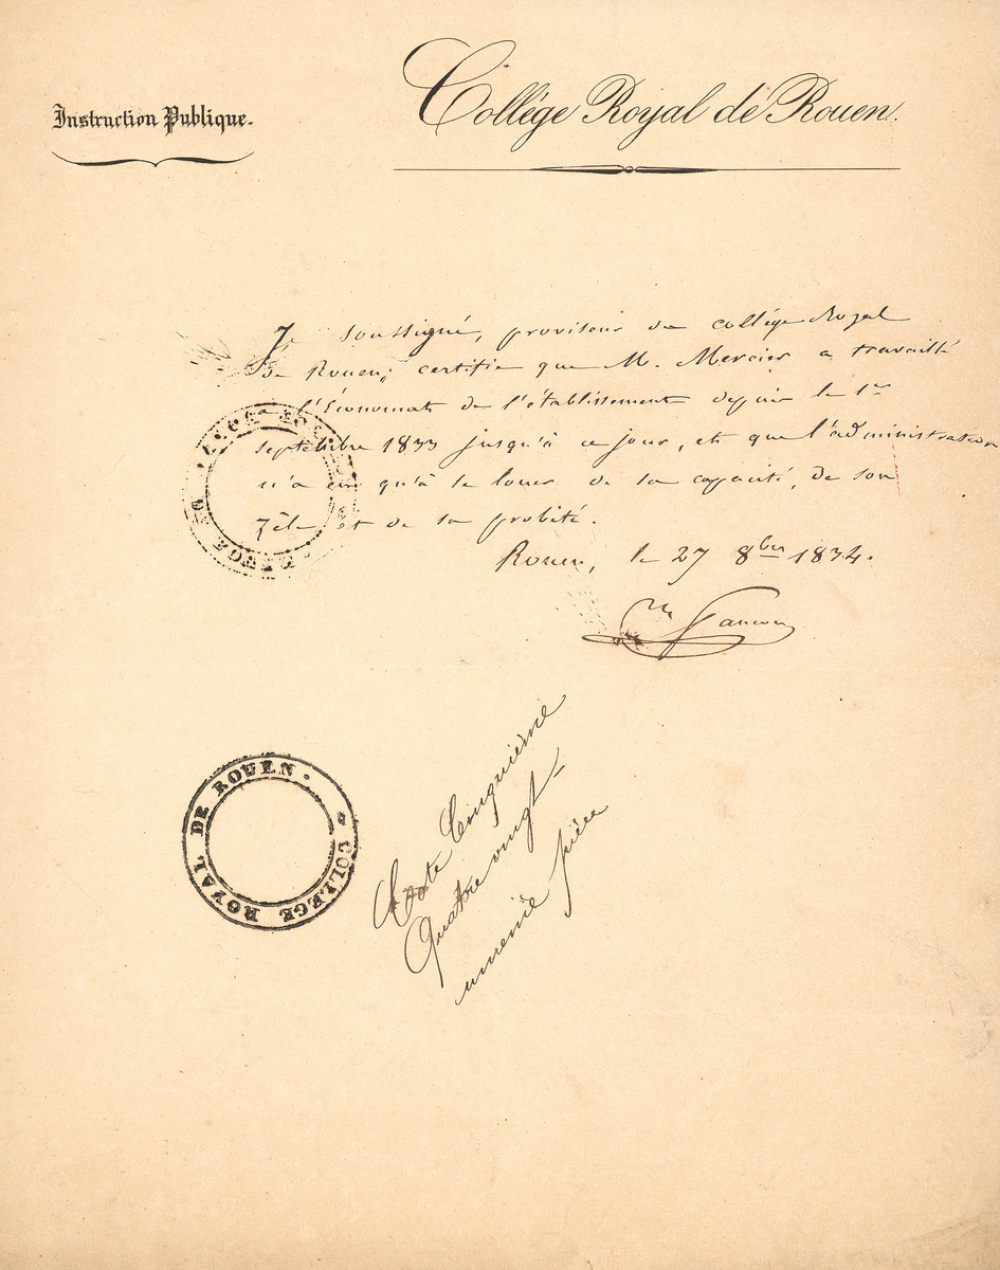 Instruction Publique.
Collége Royal de Rouen.
Je soussigné, proviseur du collége Royal
De Rouen, certifie que M. Mercier a travaillé
à l'Économat de l'établissement depuis le 1er
septembre 1833 jusqu'à ce jour, et que l'administration
n'a eu qu'à se louer de sa capacité, de son
zèle et de sa probité.
Rouen, le 27 8bre 1834.
COLLEGE ROYAL DE ROUEN.
Cote Cinquième
Quatre vingt
unième pièce